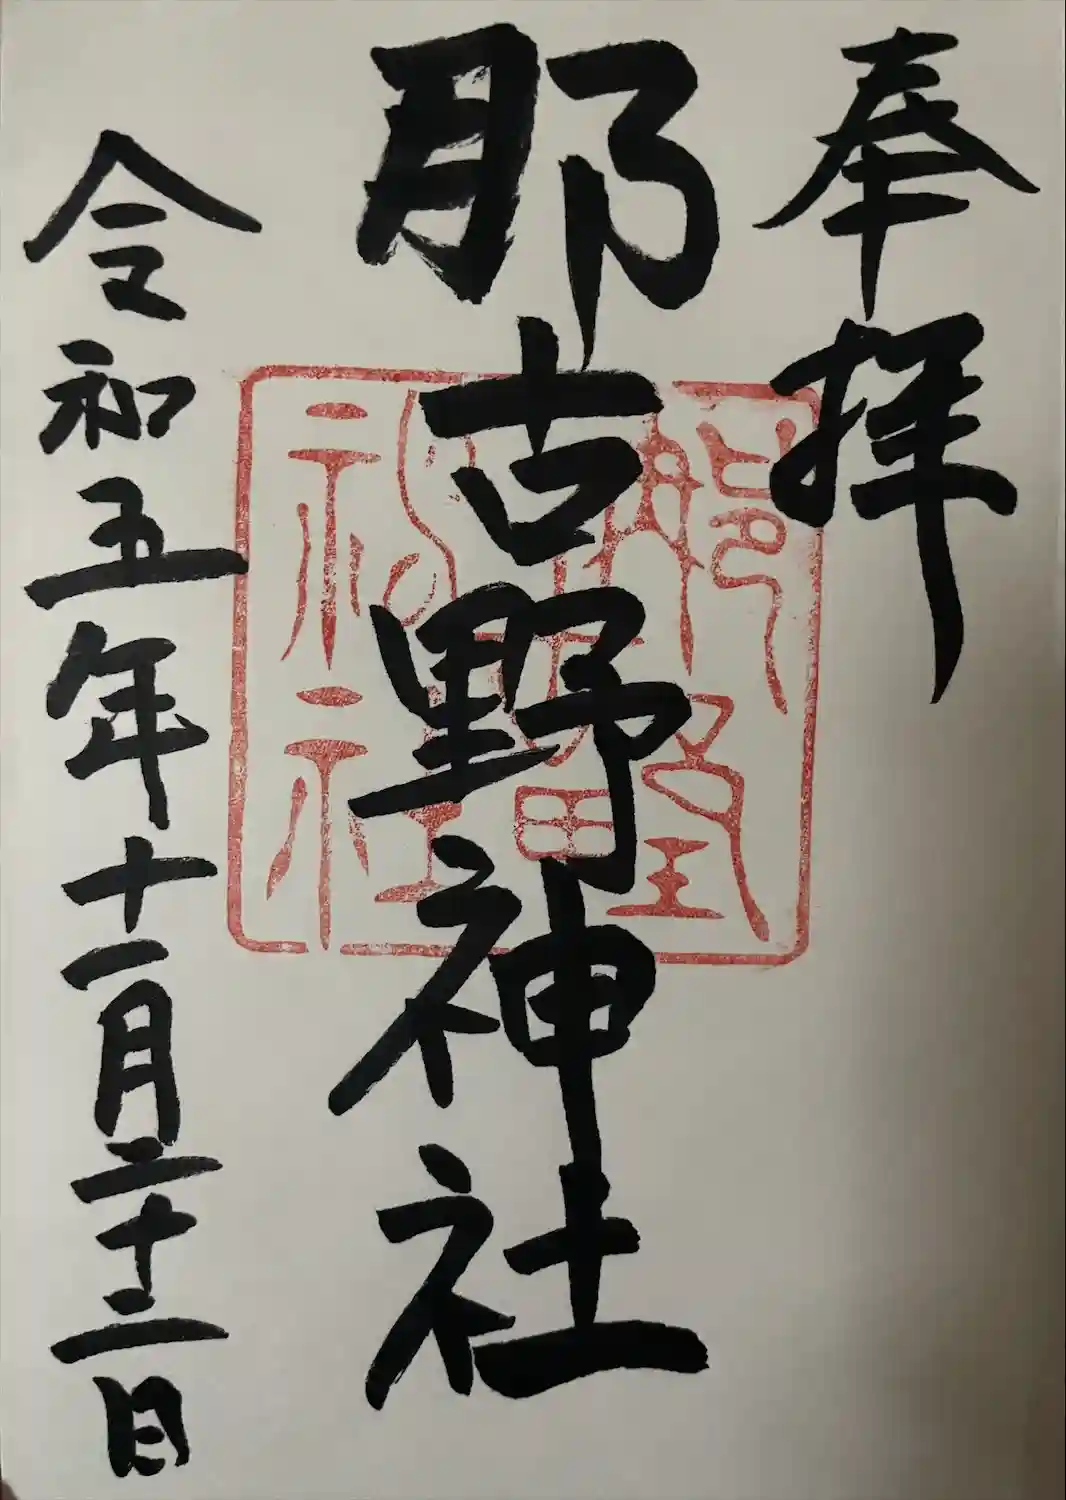 奉拝
那古野神社
令和五年十一月二十二日